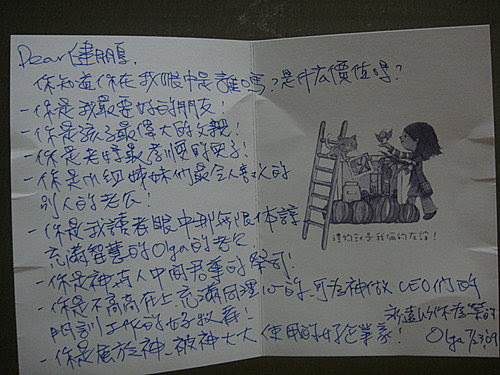 Dear 健鵬,
你知道你在我眼中是誰嗎?是什么價值嗎?
-你是我最要好的朋友!
-你是孩子最偉大的父親!
-你是老媽最孝順的兒子!
-你是小組姊妹們最令人喜欢的
別人的老公!
-你是我讀者眼中那無限体諒
充滿智慧的Olga的老公
-你是神與人中間君尊的祭司!
-你是不高高在上充滿同理心的,可為神做CEO們的
門訓工作的好牧者!
-你是屬於神,被神大大使用的好企業家!
禮物就是我倆的友誼!
永遠以你為榮的
Olga 7/23,09